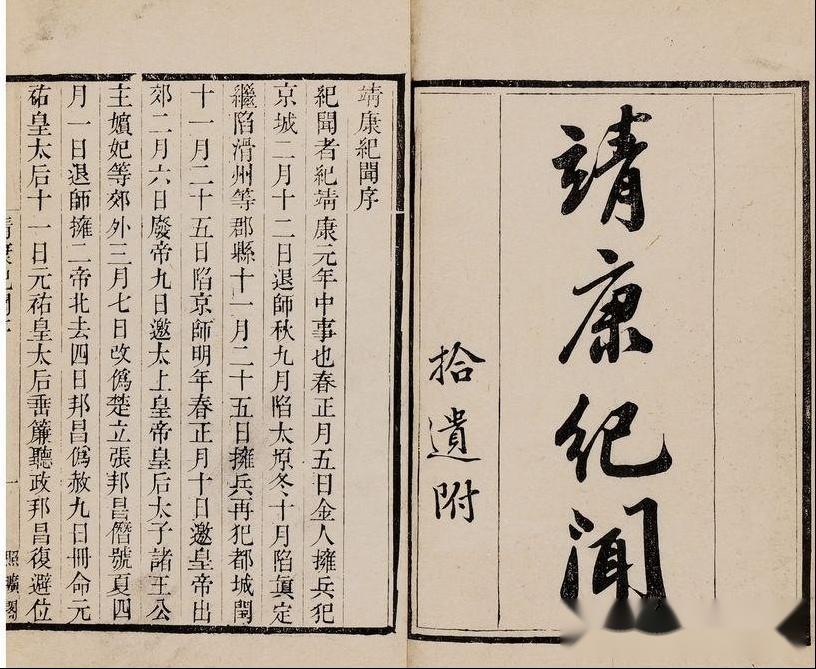 靖康紀聞
拾遺附
靖康紀聞序
紀聞者紀靖康元年中事也春正月五日金人擁兵犯
京城二月十二日退師秋九月陷太原冬十月陷眞定
繼陷滑州等郡縣十一月二十五日擁兵再犯都城閏
十一月二十五日陷京師明年春正月十日邀皇帝出
郊二月六日廢帝九日邀太上皇帝皇后太子諸王公
主嬪妃等郊外三月七日改僞楚立張邦昌僭號夏四
月一日退師擁二帝北去四日邦昌僞赦九日冊命元
祐皇太后十一日元祐皇太后垂簾聽政邦昌復避位
一
照曠閣